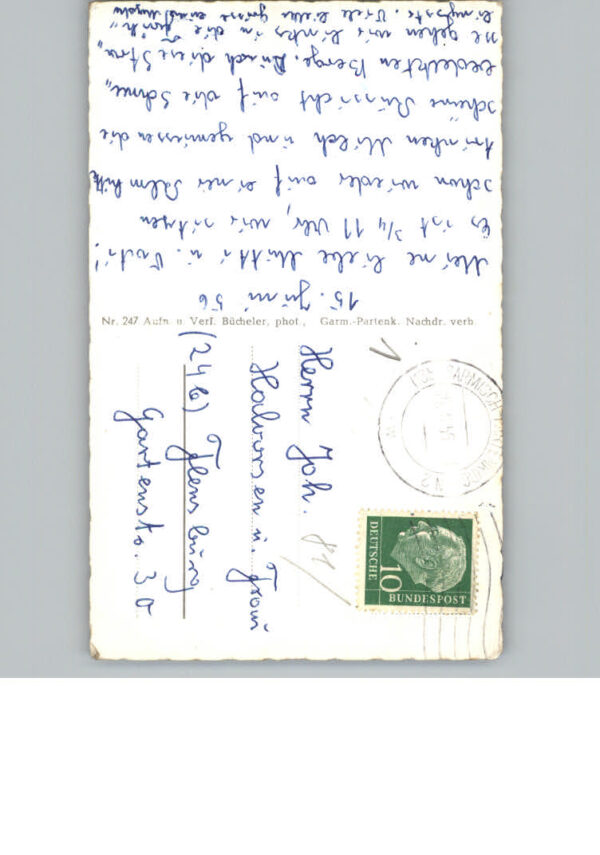 15. Juni 56
Meine liebe Mutti u. Vati!
Es ist 3/4 11 Uhr, wir sitzen
schon wieder auf einer
trinken Milch und geniessen die
schöne Aussicht auf die Schnee-
bedeckten Berge. Durch diese
gehen wir links in die
Viele liebe Grüsse
Nr. 247 Aufn. u. Verl. Bücheler, phot., Garm.-Partenk. Nachdr. verb
Herrn Joh.
Halvorsen u. Frau
(24b) Flensburg
Gartenstr. 3a
81
DEUTSCHE
BUNDESPOST
10
GARMISCH-PARTENKIRCHEN 2